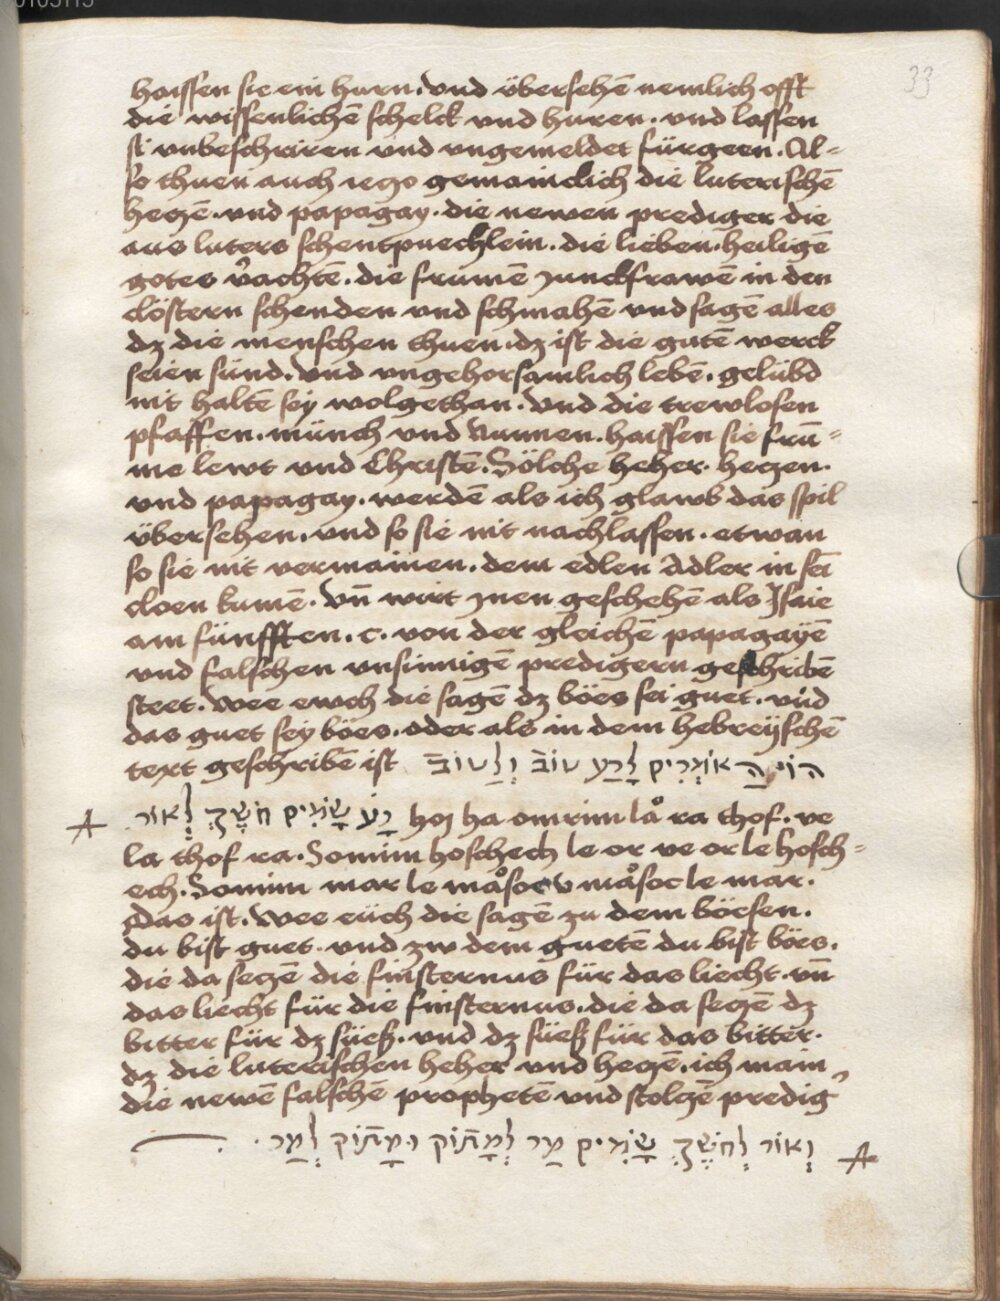 0103113
33
haissen sie ein hurn. Vnd übersehē nemlich offt
die wissenlichē schelck vnd huren. vnd lassen
si vnbeschriren vnd vngemeldet fürgeen. Al=
so thuen auch iezo gemainclich die luterischē
hezē. vnd papagay. die newen prediger die
aus luters schentpuechlein. die lieben heiligē
gotes v̄achtē. die frümē Junckfrawē in den
clöstern schenden vnd schmahen vnd sagē alles
dz die menschen thuen. dz ist die gutē werck
seien sünd. Vnd vngehorsamlich lebē. gelübd
nit haltē sey wolgethan. Vnd die trewlosen
pfaffen. münch vnd Nunnen. haissen sie frū=
me lewt vnd Christē. Sölche heher. hezen.
vnd papagay. werdē als ich glawb das spil
übersehen. vnd so sie nit nachlassen. etwan
so sie nit vermainen. dem edlen Adler in sei
cloen kumē. Vn̄ wirt Jnen geschehē als Jsaie
am fünfften. c. von der gleichē papagayē
vnd falschen vnsinnigē predigern geschribē
steet. Wee ewch die sagē dz böes sei guet. vnd
das guet sey böes. oder als in dem hebreyschē
text geschribē ist הוֹי הָאוֹמְרִים לָרַע טוֹב וְלַטוֹב
A רָע שָׂמִים חֹשֶׁךְ לְאוֹר hoj ha omrim lå ra thof. ve
la thof ra. Somim hoschech le or ve or le hosch=
ech. Somim mar le måsoc v måsoc le mar.
Das ist. Wee eüch die sagē zu dem böesen.
du bist guet. vnd zw dem guetē du bist böes.
die da sezē die finsternus für das liecht. vn̄
das liecht für die finsternus. die da sezē dz
bitter für dz süeß. vnd dz süeß für das bitter.
dz die luterischen heher vnd hezē. ich main
die newē falschē prophetē vnd stolczē predig
A וְאוֹר לְחֹשֶׁךְ שָׂמִים מַר לְמָתוֹק וּמָתוֹק לְמַר.